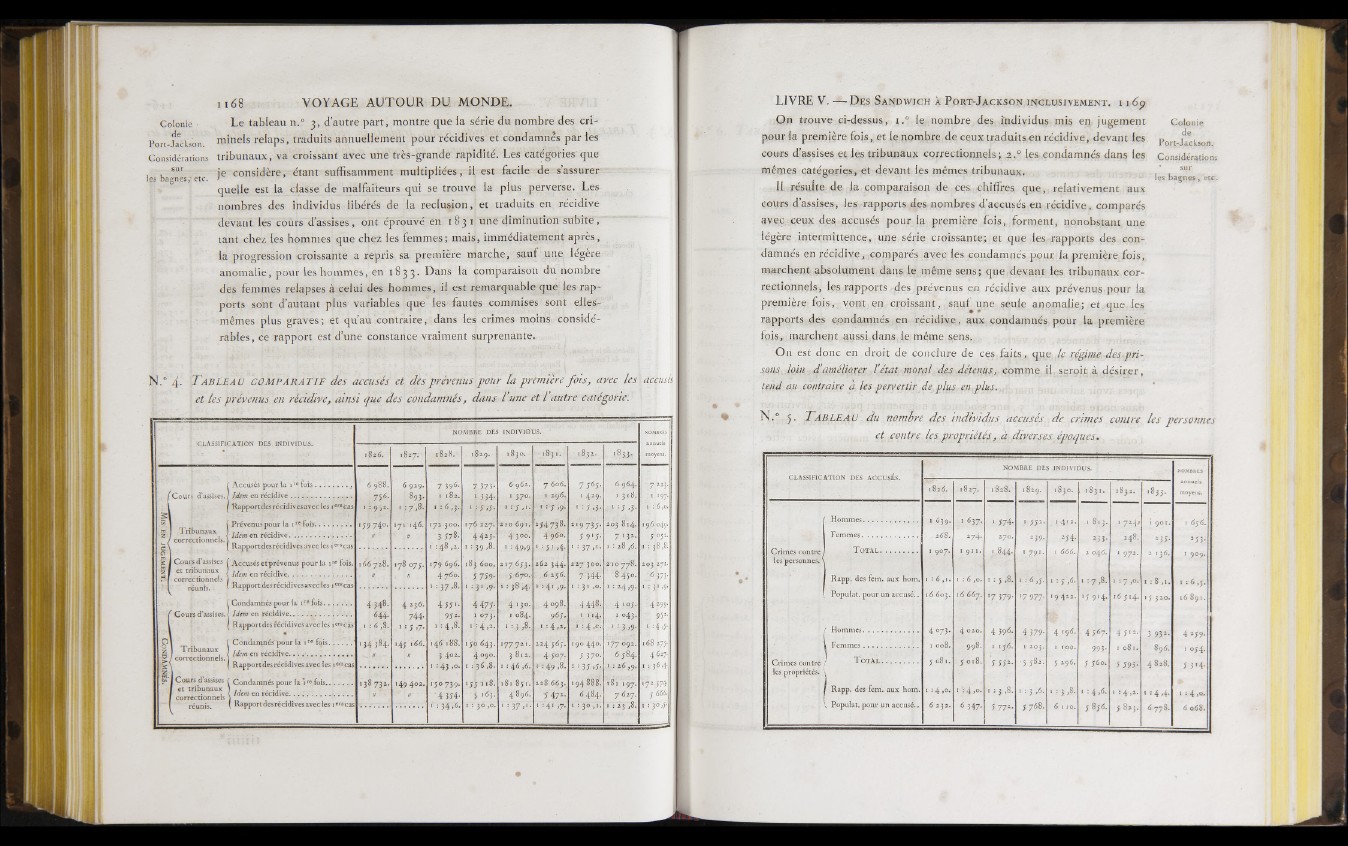 1168 VOYAGE AUTOUR DU MONDE.
Colonie
de
Port-Jackson.
Considérations
sur
les bagnes, etc.
Le tableau n.° 3, d'autre part, montre que la série du nombre des cri-
minels relaps, traduits annuellement pour récidives et condamnés par les
tribunaux, va croissant avec une très-grande rapidité. Les catégories que
je considère, étant suffisamment multipliées, il est facile de s'assurer
quelle est la classe de malfaiteurs qui se trouve la plus perverse. Les
nombres des individus libérés de la reclusion, et traduits en récidive
devant les cours d'assises, ont éprouvé en 1831 une diminution subite,
tant chez les hommes que chez les femmes; mais, immédiatement après,
la progression croissante a repris sa première marche, sauf une légère
anomalie, pour les hommes, en 1833. Dans la comparaison du nombre
des femmes relapses à celui des hommes, il est remarquable que les rap-
ports sont d'autant plus variables que les fautes commises sont elles-
mêmes plus graves; et qu'au contraire, dans les crimes moins considé-
rables, ce rapport est d'une constance vraiment surprenante.
N.° 4. TABLEAU COMPARATIF des accusés et des prévenus pour la première fois, avec les accusés
et les prévenus en récidive, ainsi que des condamnés, dans l'une et l'autre catégorie.
CLASSIFICATION DES INDIVIDUS.
NOMBRE DES INDIVIDUS.
NOMBRES
annuels
moyens.
1826. 1827. 1828. 1829. 1830. 1831. 1832. 1833.
MIS EN JUGEMENT.
Cours d'assises.
Accusés pour la 1.re fois 6 988. 6 929. 7 396. 7 373. 6 962. 7 606. 7 565. 6 964.
Idem en récidive 756. 893. 1 182. 1 334. 1 370. 1 296. 1 429. 1 318. 1 197.
Rapport des récidives avec les 1.ers cas
Tribunaux
correctionnels.
Prévenus pour la 1.re fois 159 740. 171 146. 172 300. 176 227. 210 691. 254 738. 219 735. 203 814. 196 049.
Idem en récidive 3 578. 4 425. 4 300. 4 960. 5 915. 7 132. 5 052.
Rapport des récidives avec les 1.ers cas
Cours d'assises
et tribunaux
correctionnels
réunis.
Accusés et prévenus pour la 1.re fois. 166 728. 178 075. 179 696. 183 600. 217 653. 262 344. 227 300. 210 778.
Idem en récidive 4 760. 5 759. 5 670. 6 256. 7 344. 8 450. 6 373.
Rapport des récidives avec les 1.ers cas
CONDAMNÉS.
Cours d'assises.
Condamnés pour la 1.re fois 4 348. 4 236. 4 551. 4 475. 4 130. 4 098. 4 448. 4 105. 4 299.
Idem en récidive 644. 744. 952. 1 073. 1 084. 965. 1 114. 1 043. 952.
Rapport des récidives avec les 1.ers cas
Tribunaux
correctionnels.
Condamnés pour la 1.re fois 134 384. 145 166. 146 188. 150 643. 177 721. 224 565. 190 440. 177 092.
Idem en récidive 3 402. 4 090. 3 812. 4 507. 5 370. 6 584. 4 627.
Rapport des récidives avec les 1.ers cas
Cours d'assises
et tribunaux
correctionnels
réunis.
Condamnés pour la 1.re fois 138 732. 149 402. 150 739. 155 118. 181 851. 228 663. 194 888. 181 197.
Idem en récidive 4 354. 5 163. 4 896. 5 472. 6 484. 7 627. 5 666.
Rapport des récidives avec les 1.ers cas
LIVRE V. — DES SANDWICH À PORT-JACKSON INCLUSIVEMENT. 1169
Colonie
de
Port-Jackson.
Considérations
sur
les bagnes, etc.
On trouve ci-dessus, 1.° le nombre des individus mis en jugement
pour la première fois, et le nombre de ceux traduits en récidive, devant les
cours d'assises et les tribunaux correctionnels; 2.° les condamnés dans les
mêmes catégories, et devant les mêmes tribunaux.
Il résulte de la comparaison de ces chiffres que, relativement aux
cours d'assises, les rapports des nombres d'accusés en récidive, comparés
avec ceux des accusés pour la première fois, forment, nonobstant une
légère intermittence, une série croissante; et que les rapports des con-
damnés en récidive, comparés avec les condamnés pour la première fois,
marchent absolument dans le même sens; que devant les tribunaux cor-
rectionnels, les rapports des prévenus en récidive aux prévenus pour la
première fois, vont en croissant, sauf une seule anomalie; et que les
rapports des condamnés en récidive, aux condamnés pour la première
fois, marchent aussi dans le même sens.
On est donc en droit de conclure de ces faits, que le régime des pri-
sons loin d'améliorer l'état moral des détenus, comme il seroit à désirer,
tend au contraire à les pervertir de plus en plus.
N.° 5. TABLEAU du nombre des individus accusés de crimes contre les personnes
et contre les propriétés, à diverses époques.
CLASSIFICATION DES ACCUSÉS.
NOMBRE DES INDIVIDUS.
NOMBRES
annuels
moyens.
1826. 1827. 1828. 1829. 1830. 1831. 1832. 1833.
Crimes contre
les personnes.
Hommes 1 639. 1 637. 1 574. 1 552. 1 412. 1 823. 1 724. 1 901. 1 656.
Femmes 268. 274. 270. 239. 254. 233. 248. 235. 253.
TOTAL 1 907. 1 911. 1 844. 1 791. 1 666. 2 046. 1 972. 2 136. 1 909.
Rapp. des fem. aux hom. 1 : 6,1. 1 : 6,0. 1 : 5,8. 1 : 6,5. 1 : 5,6. 1 : 7,8. 1 : 7,0. 1 : 8,1. 1 : 6,5.
Populat. pour un accusé 16 603. 16 667. 17 379. 17 977. 19 422. 15 914. 16 514. 15 320. 16 891.
Crimes contre
les propriétés.
Hommes 4 073. 4 020. 4 396. 4 379. 4 196. 4 567. 4 512. 3 932. 4 259.
Femmes 1 008. 998. 1 156. 1 203. 1 100. 993. 1 081. 896. 1 054.
TOTAL 5 081. 5 018. 5 552. 5 582. 5 296. 5 560. 5 593. 4 828. 5 314.
Rapp. des fem. aux hom. 1 : 4,0. 1 : 4,0. 1 : 3,8. 1 : 3,6. 1 : 3,8. 1 : 4,6. 1 : 4,2. 1 : 4,4. 1 : 4,0.
Populat. pour un accusé 6 232. 6 347. 5 772. 5 768. 6 110. 5 856. 5 823. 6 778. 6 068.